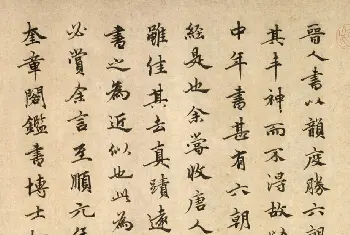 晉人書以韻度勝六朝
其丰神而不得故
中年書甚有六朝
經是也余嘗收唐人
雖佳其去真蹟遠
書之為近似也此為
必賞余言至順元年
奎章閣鑑書博士